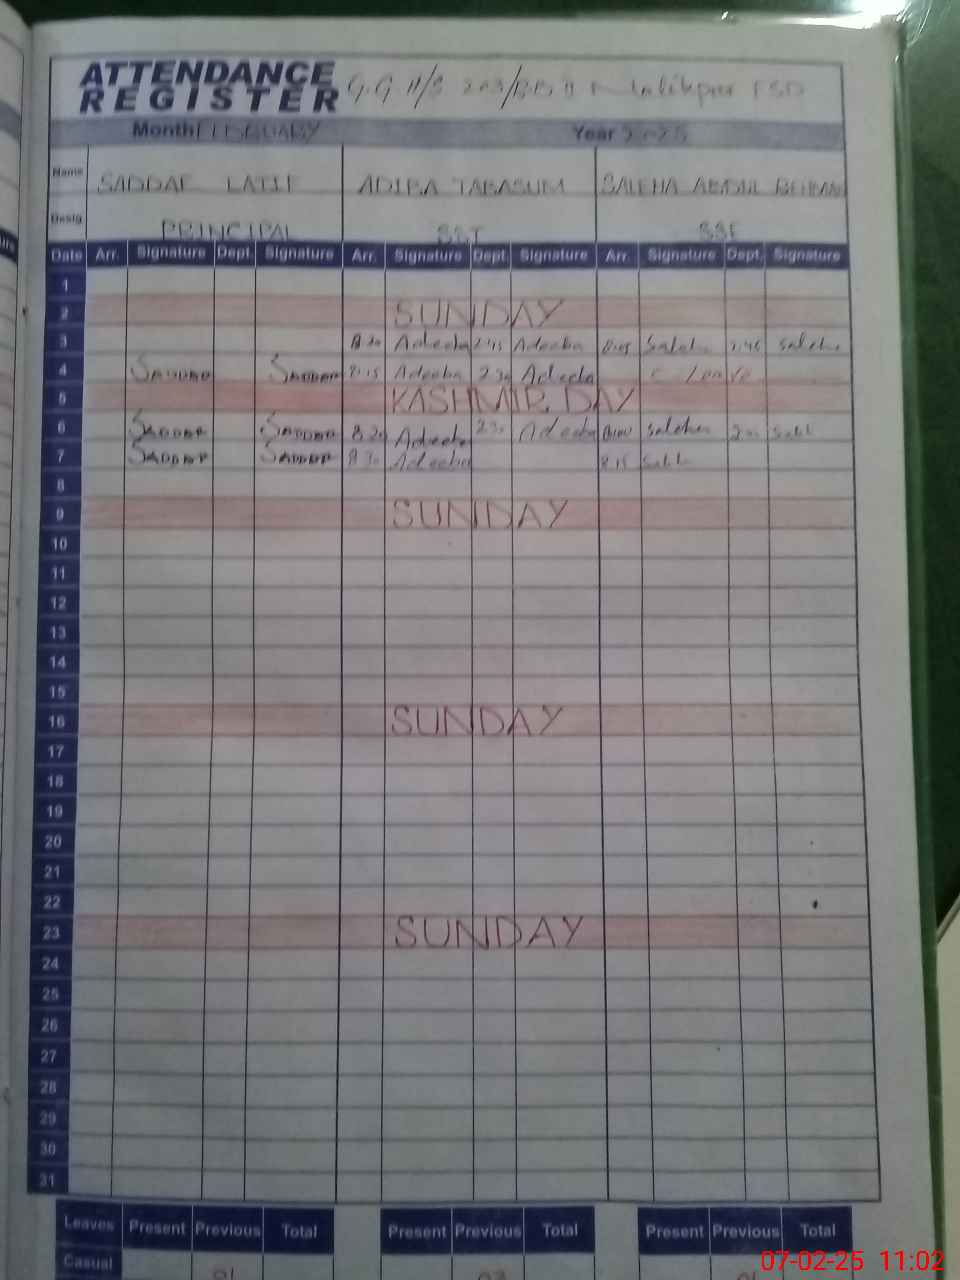 ATTENDANCE
REGISTER G.G.H/S 203/RB Malikpur FSD
Month FEBRUARY Year 2025
Name SADDAF LATIF ADIBA TABASUM SALEHA ABDUL REHMAN
Desig PRINCIPAL SST SSE
Date Arr. Signature Dept. Signature Arr. Signature Dept. Signature Arr. Signature Dept. Signature
1
2 SUNDAY
3 8:20 Adeeba 2:45 Adeeba 8:05 Saleha 2:45 Saleha
4 SADDAF SADDAF 8:15 Adeeba 2:30 Adeeba C Leave
5 KASHMIR DAY
6 SADDAF SADDAF 8:20 Adeeba 2:30 Adeeba Saleha
7 SADDAF SADDAF 8:30 Adeeba 8:15
8
9 SUNDAY
10
11
12
13
14
15
16 SUNDAY
17
18
19
20
21
22
23 SUNDAY
24
25
26
27
28
29
30
31
Leaves Present Previous Total Present Previous Total Present Previous Total
Casual 01 03
07-02-25 11:02